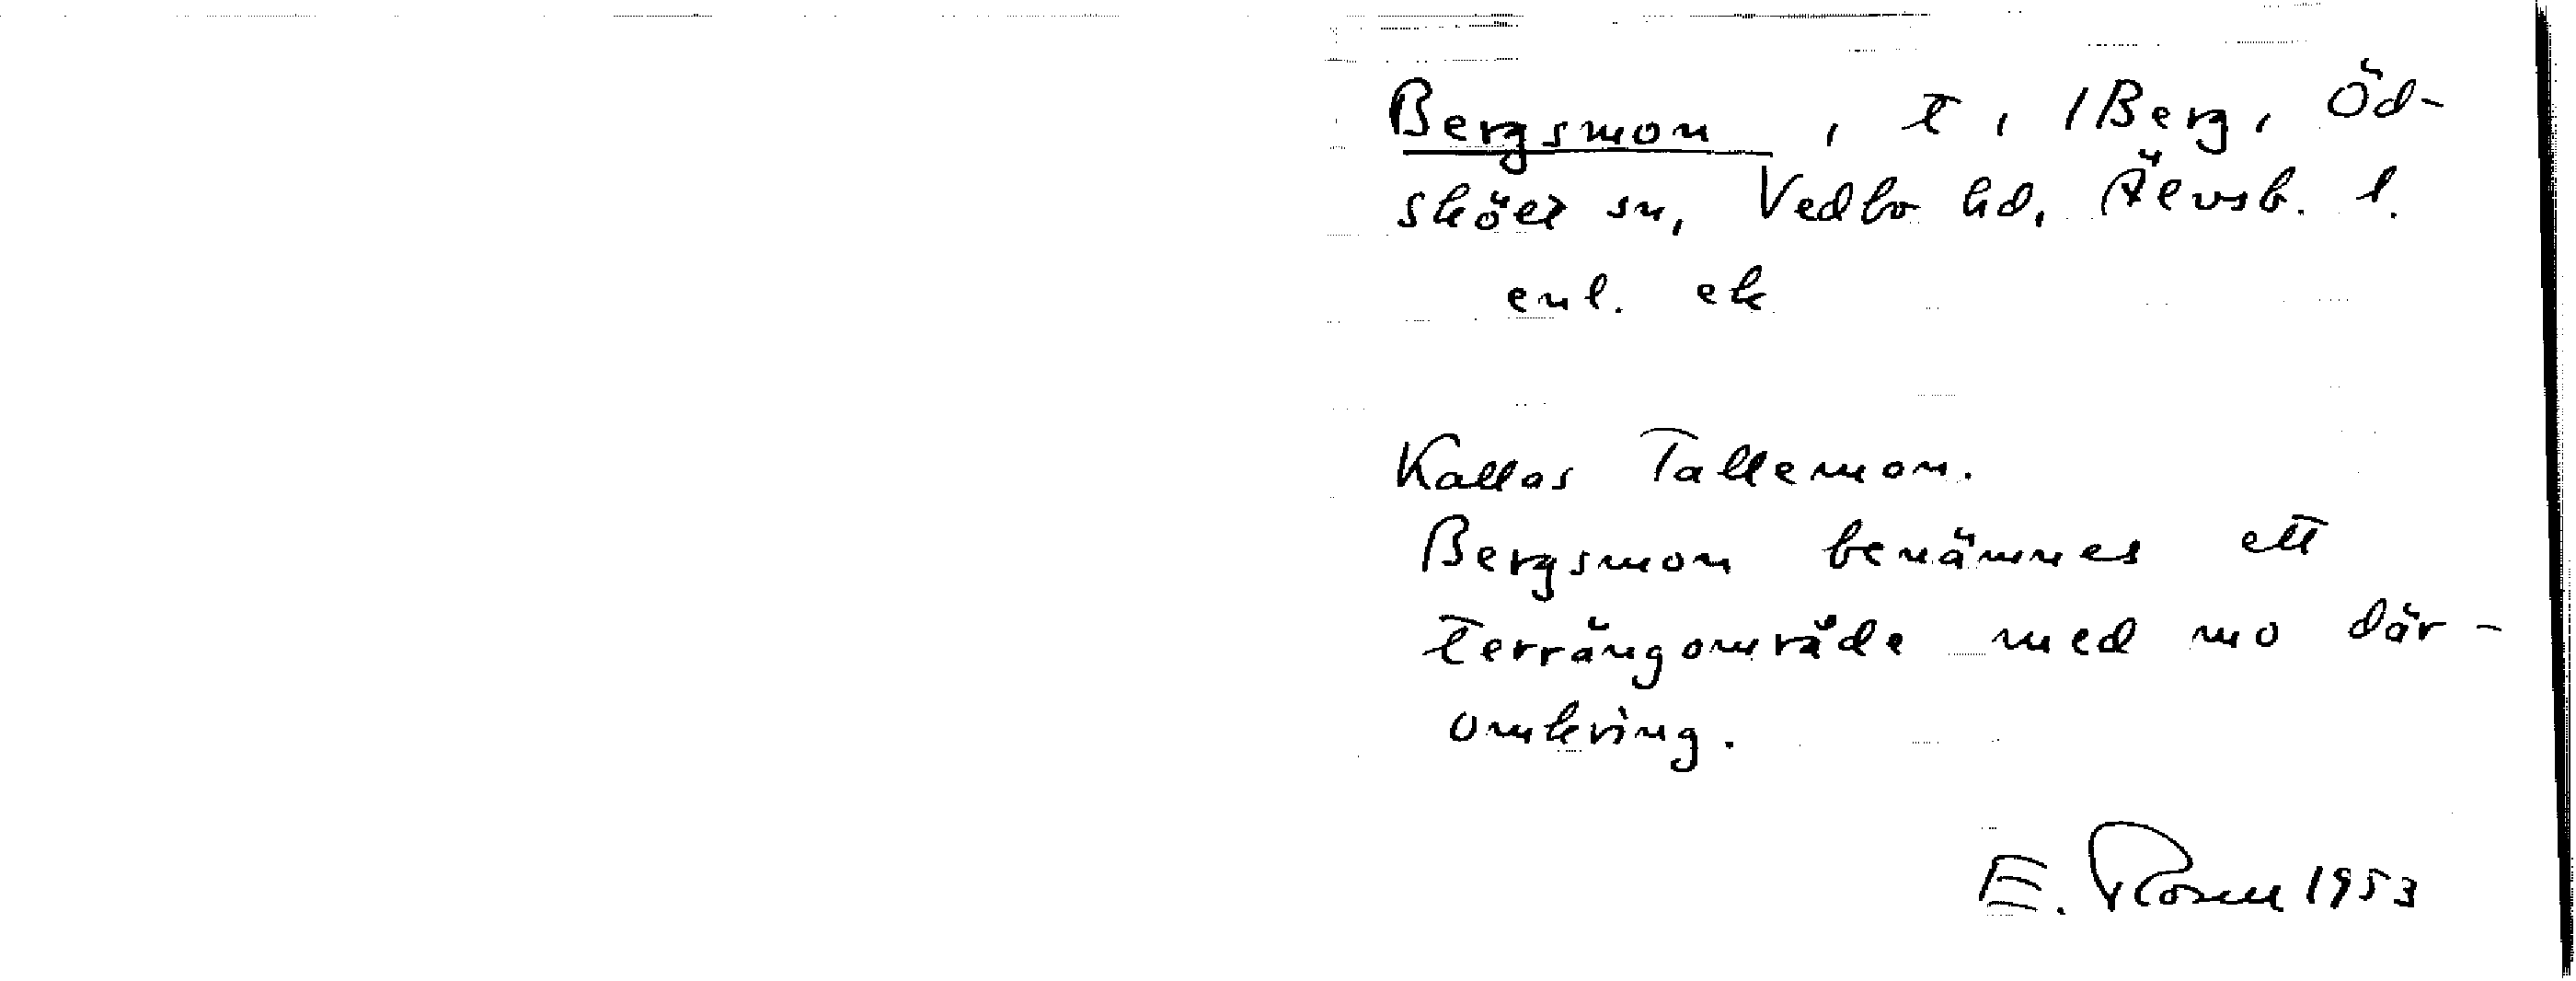 Bergsmon, t, /Berg, Öd-
sköts sn, Vedbo hd, Älvsb. l.
enl. ek
Kallas Tallemon.
Bergsmon benämnes ett
terrängområde med mo där-
omkring.
E. Rosell 1953